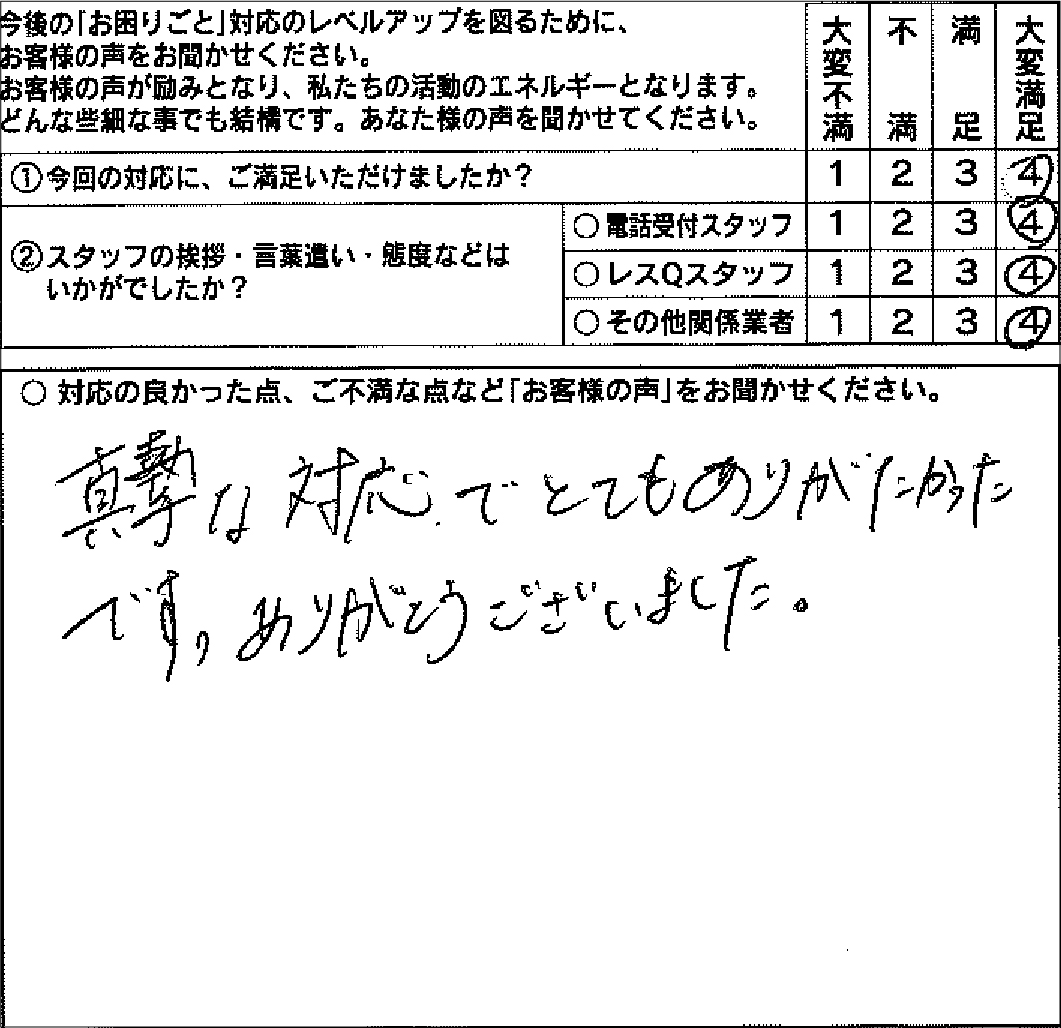 今後の「お困りごと」対応のレベルアップを図るために、
お客様の声をお聞かせください。
お客様の声が励みとなり、私たちの活動のエネルギーとなります。
どんな些細な事でも結構です。あなた様の声を聞かせてください。
大変不満 不満 満足 大変満足
①今回の対応に、ご満足いただけましたか? 1 2 3 4
②スタッフの挨拶・言葉遣い・態度などは
いかがでしたか?
○電話受付スタッフ 1 2 3 4
○レスQスタッフ 1 2 3 4
○その他関係業者 1 2 3 4
○ 対応の良かった点、ご不満な点など「お客様の声」をお聞かせください。
真摯な対応でとてもありがたかった
です。ありがとうございました。